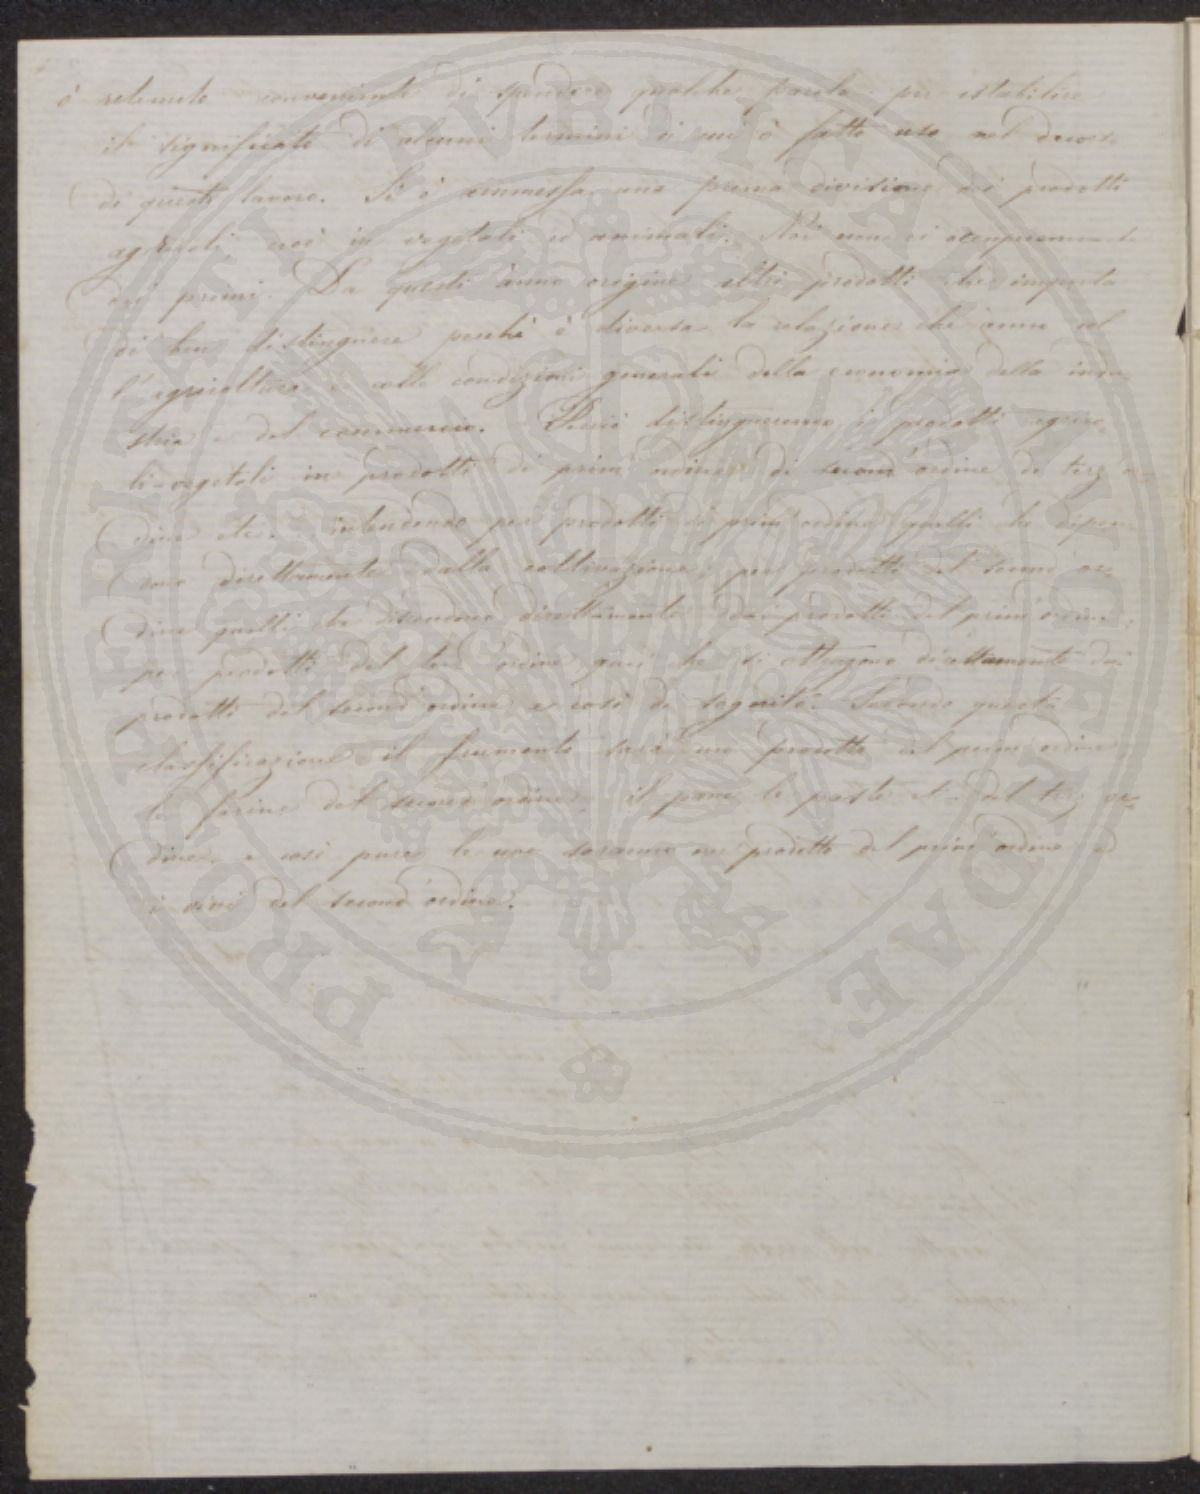 ò ritenuto conveniente di spendere qualche parola per istabilire
il significato di alcuni termini di cui è fatto uso nel decorso
di questo lavoro. Si è ammessa una prima divisione dei prodotti
agricoli, cioè in vegetali ed animali. Noi non ci occuperemo che
dei primi. Da questi ànno origine altri prodotti che importa
di ben distinguere perchè è diversa la relazione che ànno col
l'agricoltura e colle condizioni generali della economia della indu-
stria e del commercio. Perciò distingueremo i prodotti agrico-
li-vegetali in prodotti di prim'ordine, di second'ordine di terz'or-
dine etc. intendendo per prodotti di prim'ordine quelli che dipen-
dono direttamente dalla coltivazione; per prodotti del second'or-
dine quelli che discendono direttamente dai prodotti del prim'ordine;
per prodotti del terz'ordine quei che si ottengono direttamente dai
prodotti del second'ordine e così di seguito. Secondo questa
classificazione il frumento sarà uno prodotto del prim'ordine
le farine del second'ordine, il pane le paste etc. del terz'or-
dine, e così pure le uve saranno un prodotto del prim'ordine ed
i vini del second'ordine.
PROVERITATI PVBLICAE VINCENDAE